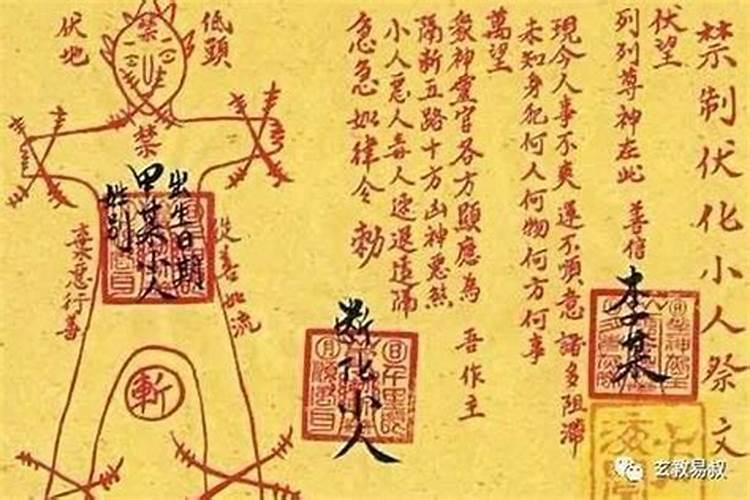 禁制伏化小人祭文
伏望
列列尊神在此 善信
李某
現今人事不爽 運不順意 諸多阻滯
未知身犯何人何物何方何事
萬望
衆神靈官各方顯應為 吾作主
隔斷五路十方凶神惡煞
小人惡人毒人速退遠隔
急急如律令 勅
斷化小人
低頭
伏地
禁
禁
出生日期
甲某小人
姓別
棄惡行善
從善如流
斬
玄教易叔